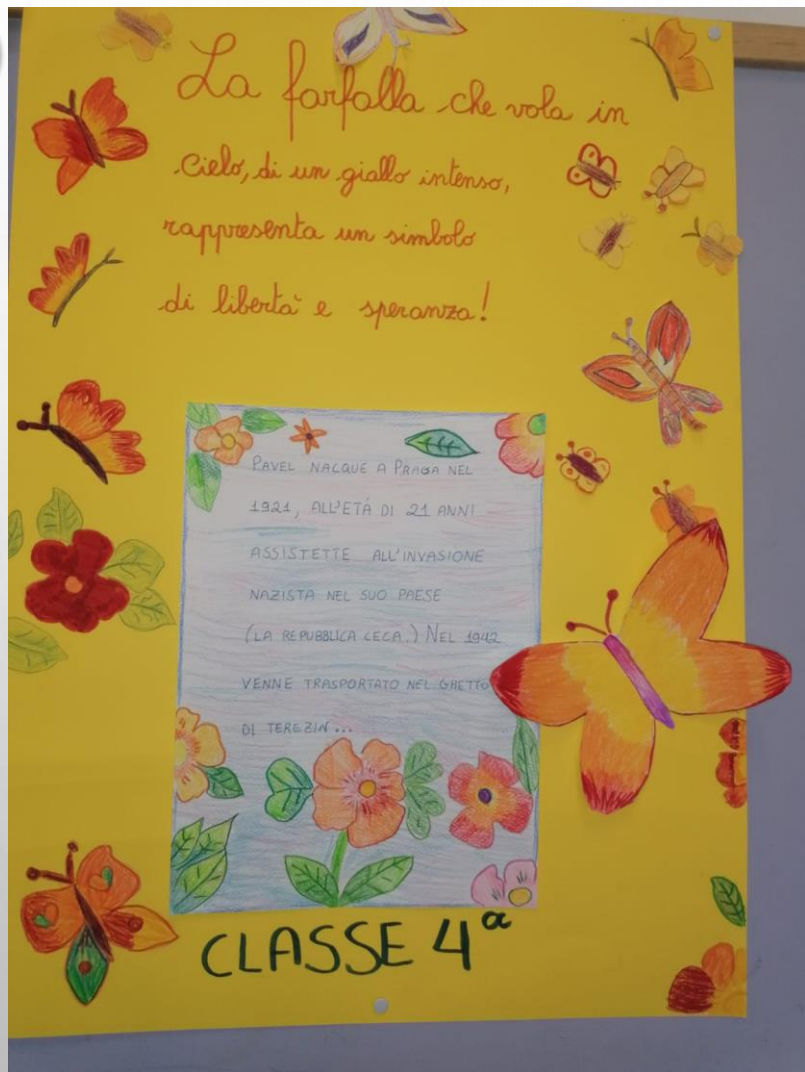 La farfalla che vola in
cielo, di un giallo intenso,
rappresenta un simbolo
di libertà e speranza!
PAVEL NACQUE A PRAGA NEL
1921, ALL'ETÁ DI 21 ANNI
ASSISTETTE ALL'INVASIONE
NAZISTA NEL SUO PAESE
(LA REPUBBLICA CECA.) NEL 1942
VENNE TRASPORTATO NEL GHETTO
DI TEREZIN...
CLASSE 4ª